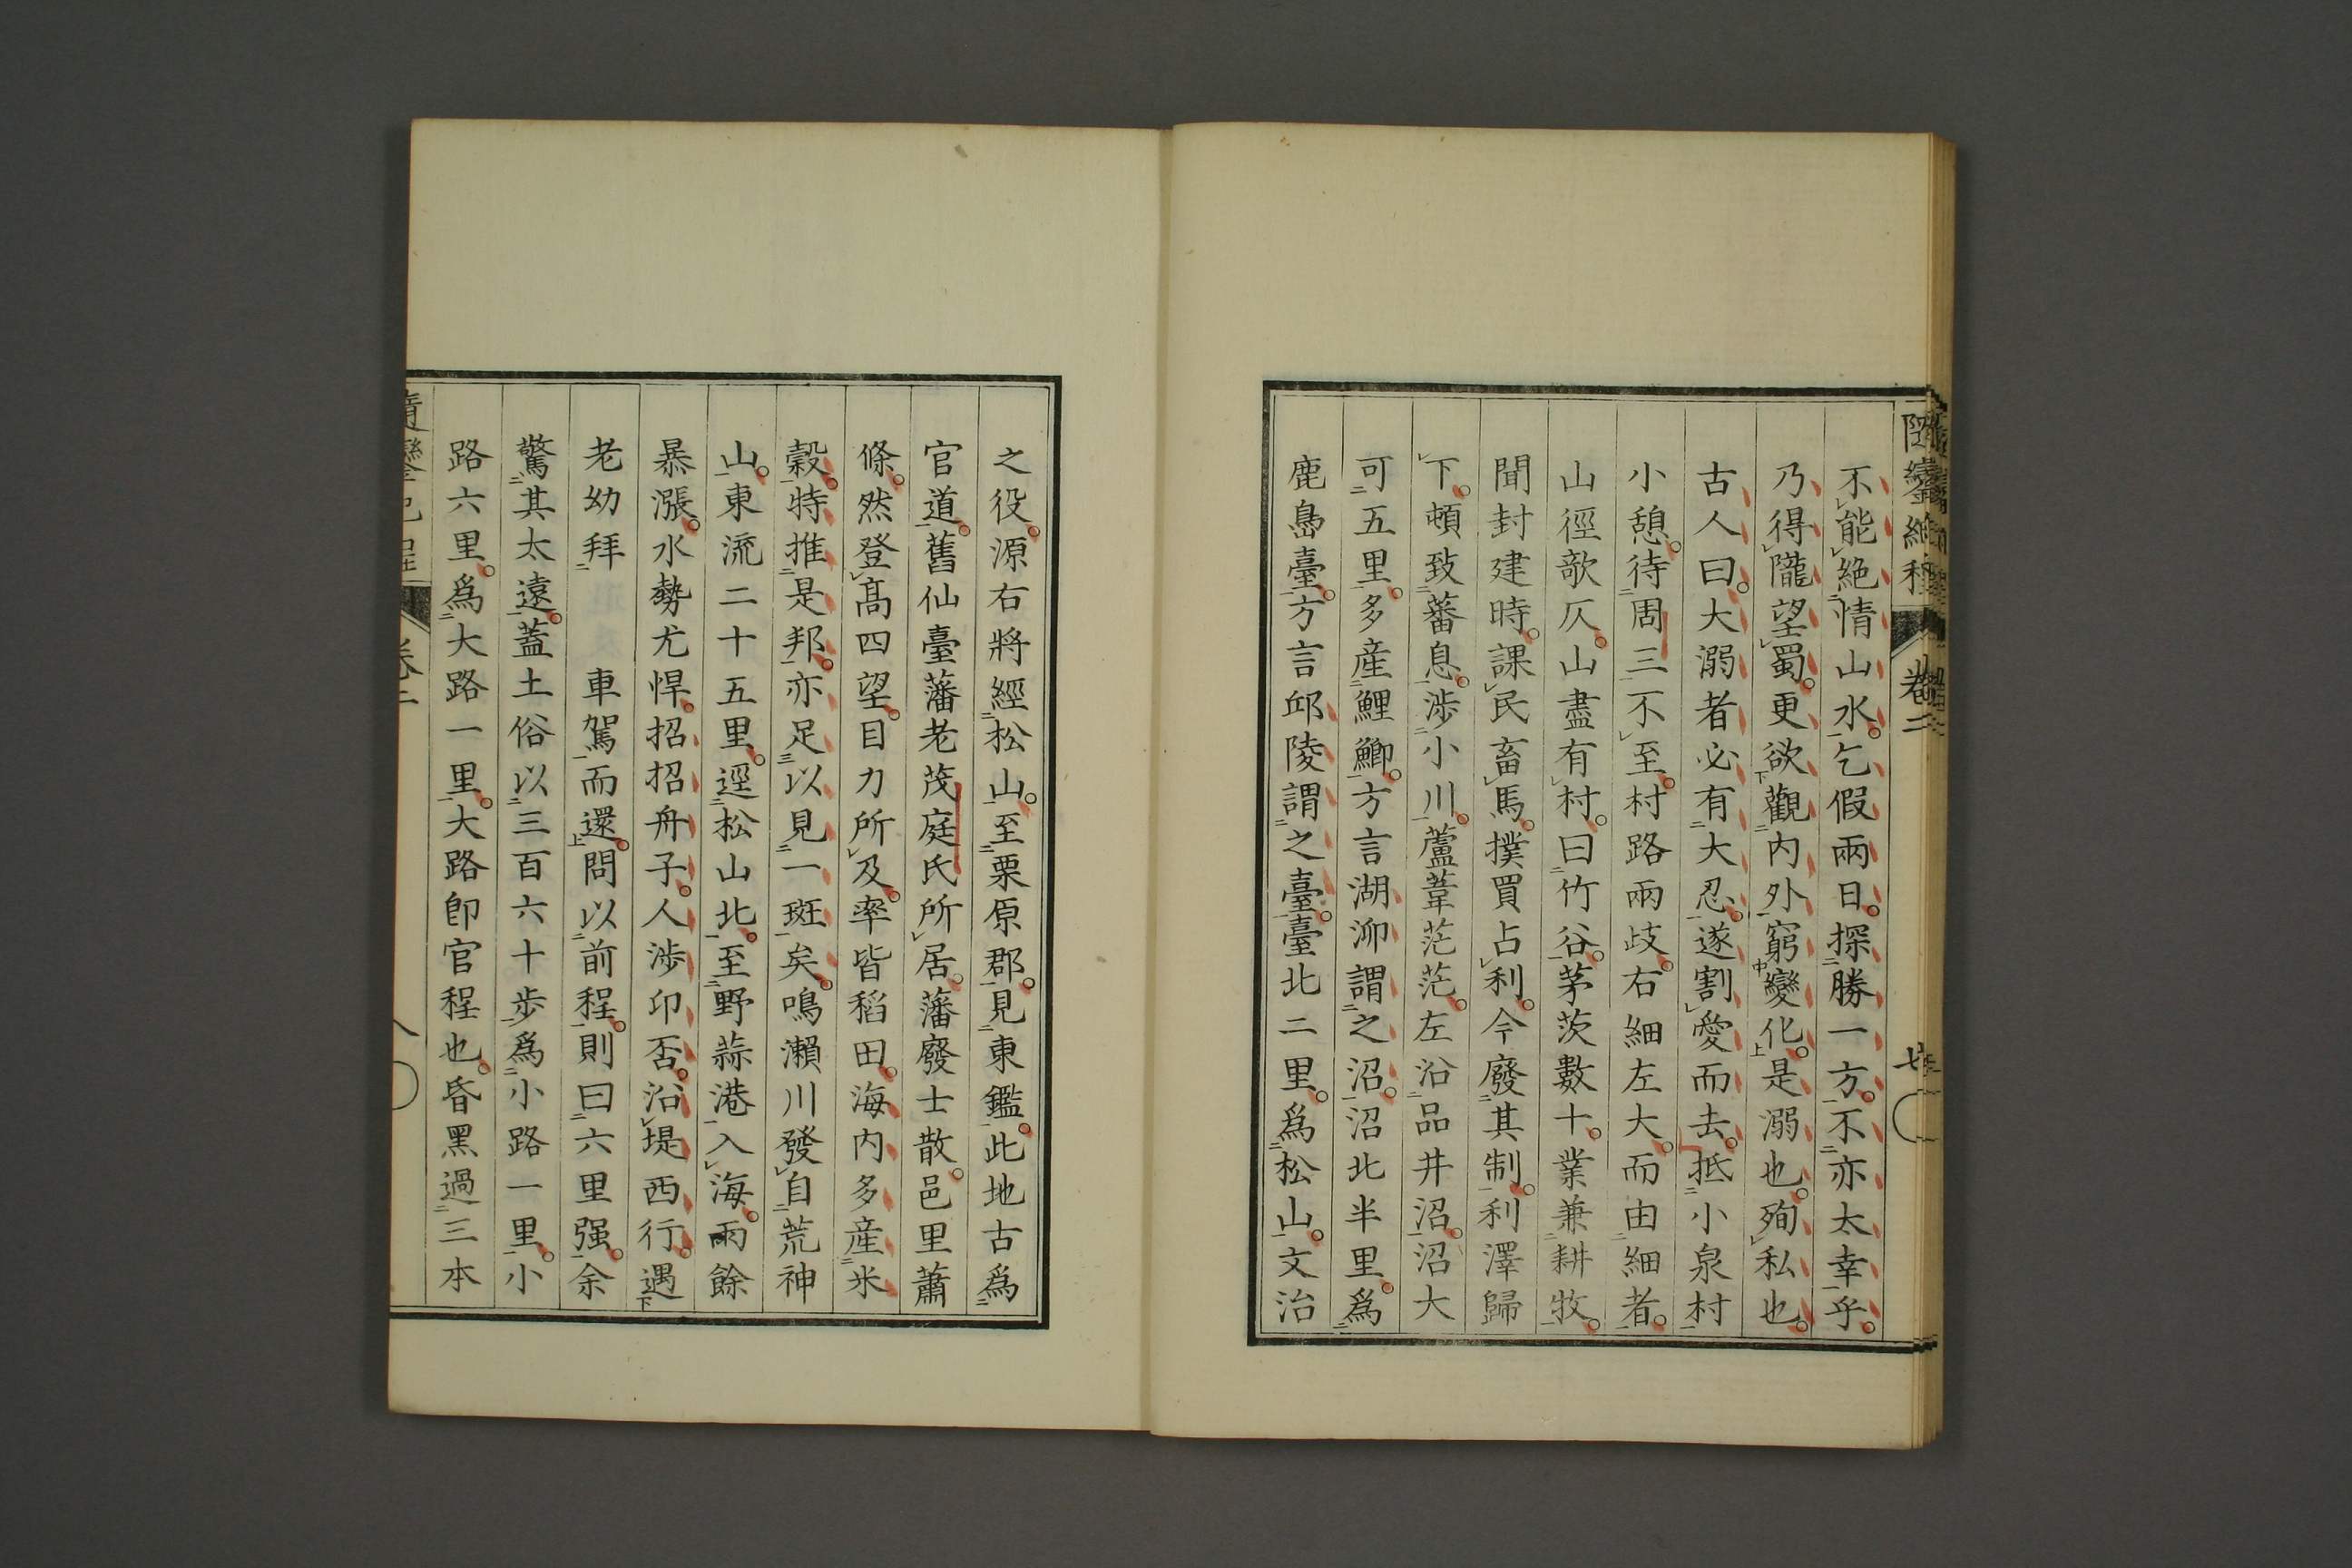 不能絶情山水。乞假兩日。探勝一方。不亦太幸乎。
乃得隴望蜀。更欲觀内外窮變化。是溺也。殉私也。
古人曰。大溺者必有大忍。遂割愛而去。抵小泉村
小憩。待周三不至。村路兩歧。右細左大。而由細者。
山徑欹仄。山盡有村。曰竹谷。茅茨數十。業兼耕牧。
聞封建時。課民畜馬。撲買占利。今廢其制。利澤歸
下。頓致蕃息。渉小川。蘆葦茫茫。左沿品井沼。沼大
可五里。多産鯉鯽。方言湖泖謂之沼。沼北半里。爲
鹿島臺。方言邱陵謂之臺。臺北二里。爲松山。文治
之役。源右將經松山。至栗原郡。見東鑑。此地古爲
官道。舊仙臺藩老茂庭氏所居。藩廢士散。邑里蕭
條。然登髙四望。目力所及。率皆稻田。海内多産米
穀。特推是邦。亦足以見一斑矣。鳴瀨川發自荒神
山。東流二十五里。逕松山北。至野蒜港入海。雨餘
暴漲。水勢尤悍。招招舟子。人渉卬否。沿堤西行。遇
老幼拜 車駕而還。問以前程。則曰六里强。余
驚其太遠。蓋土俗以三百六十歩爲小路一里。小
路六里。爲大路一里。大路卽官程也。昏黑過三本
卷二